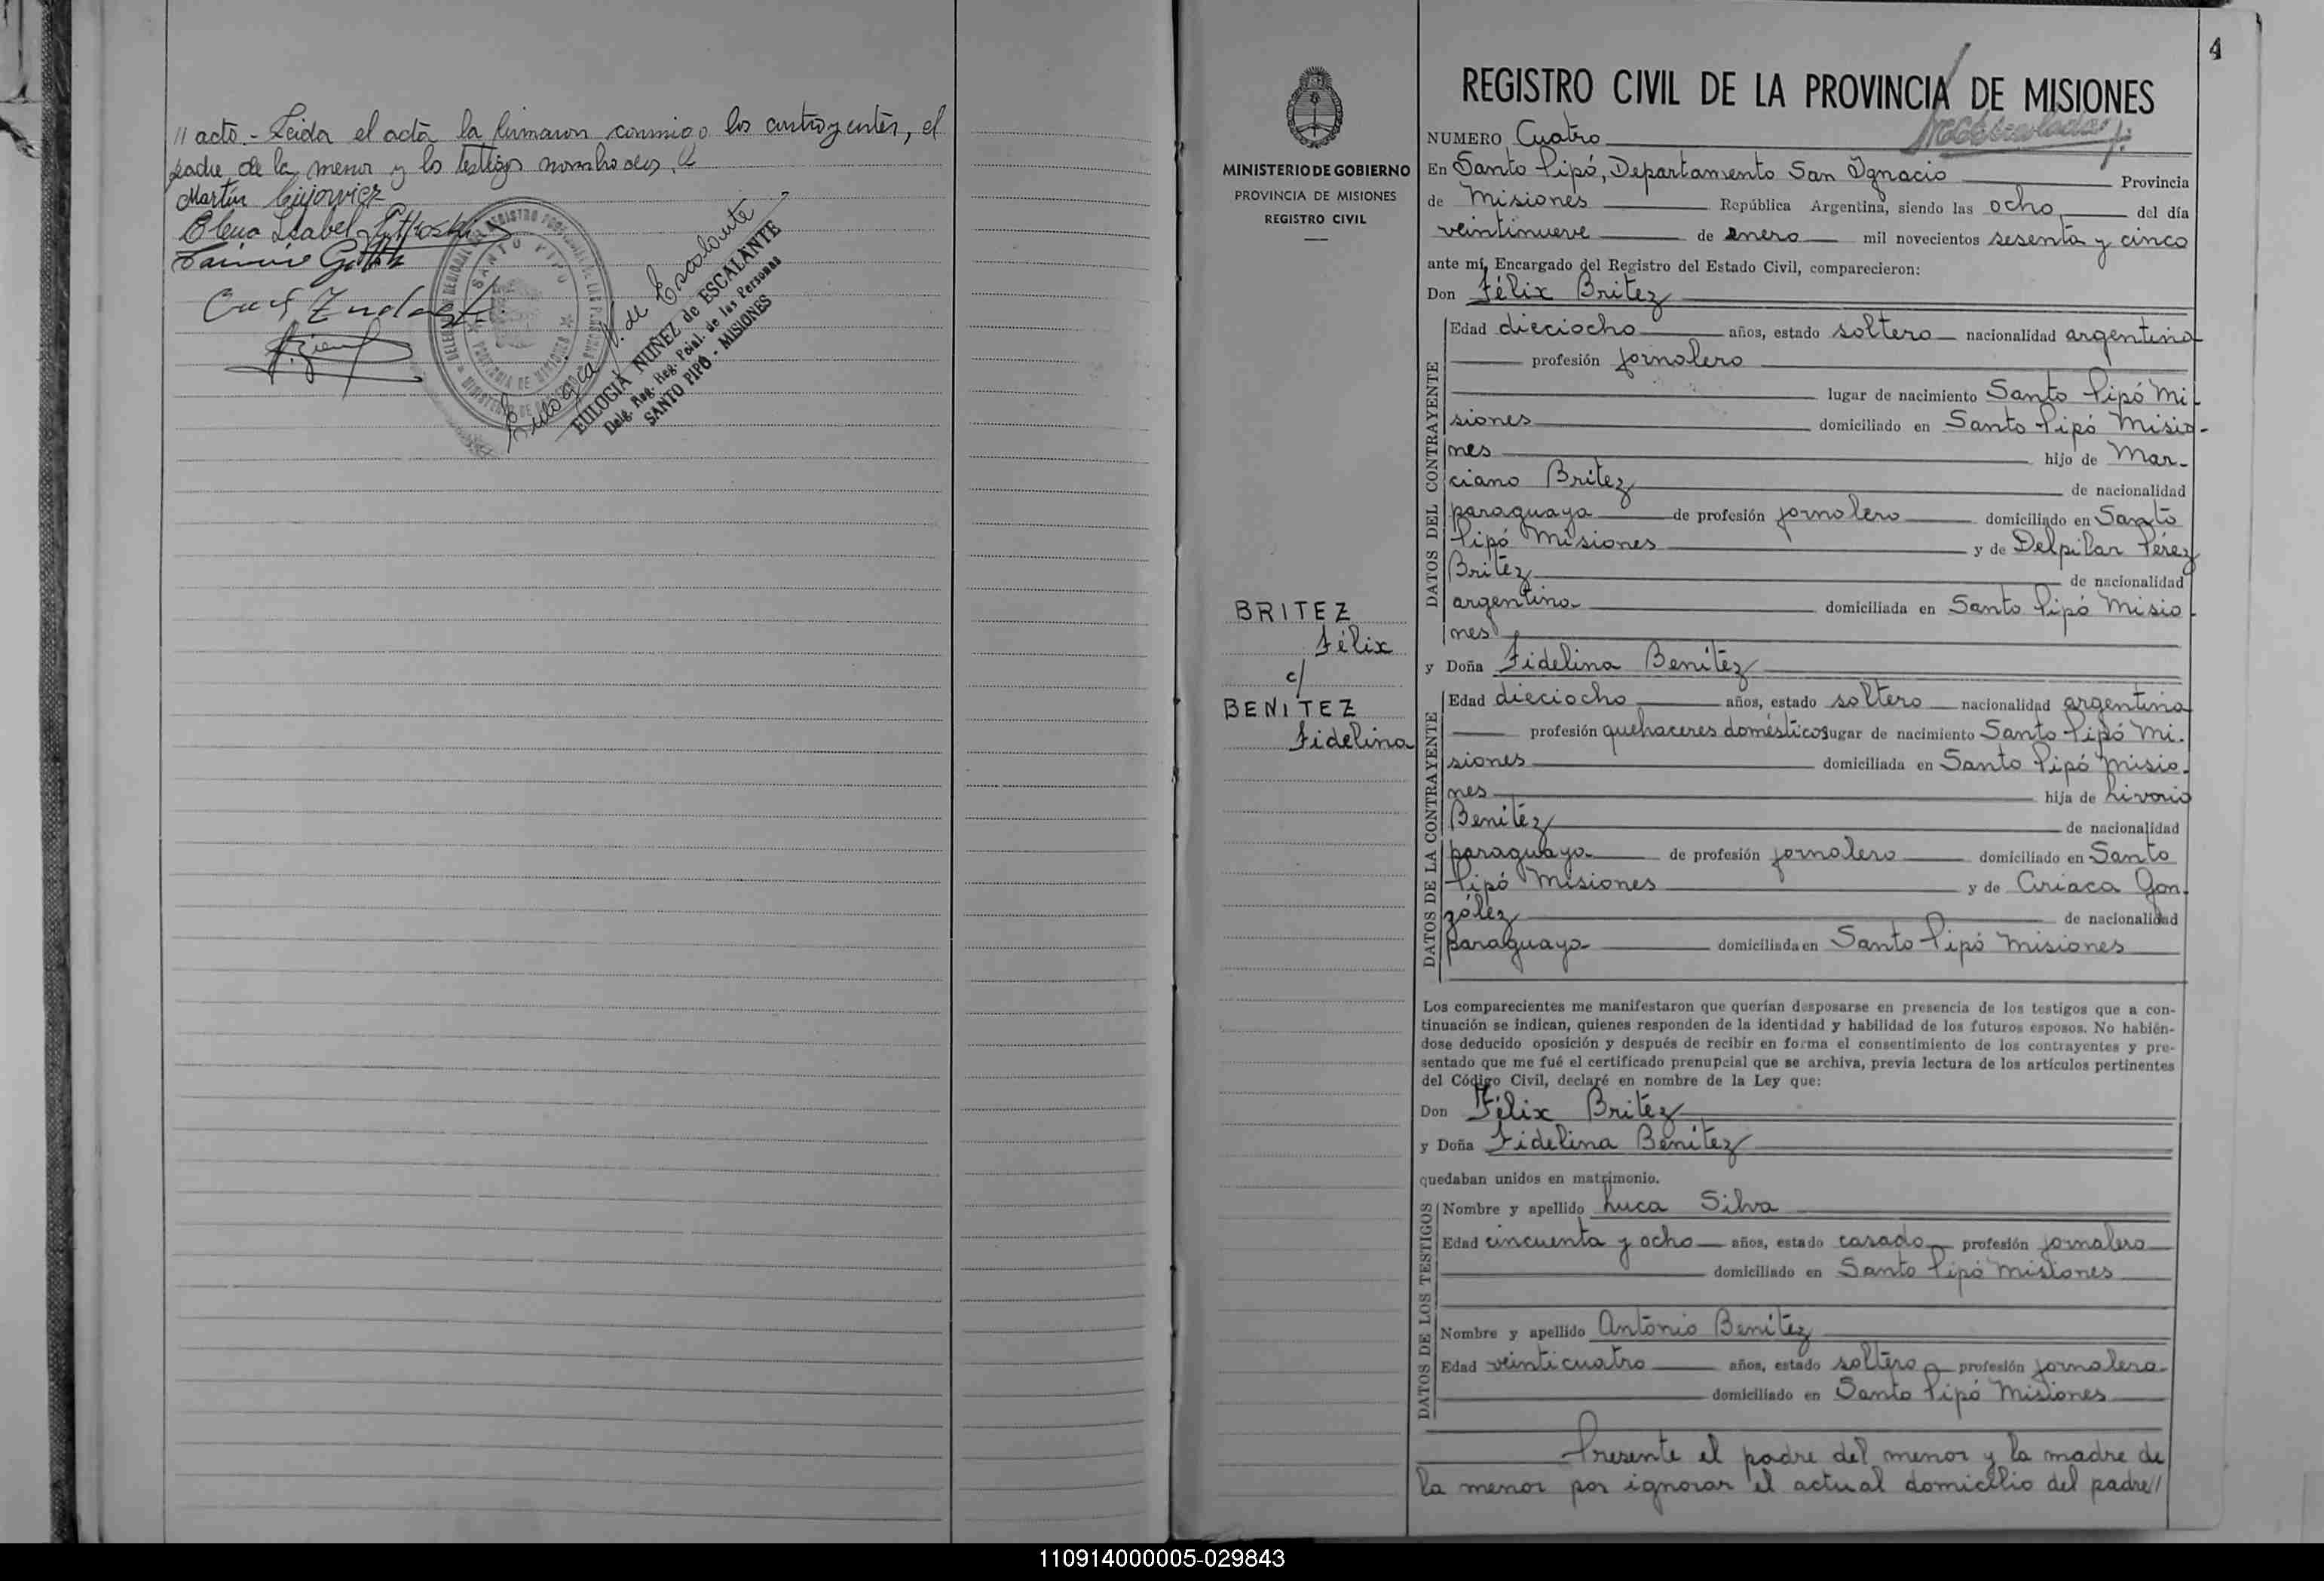 // acto.- Leida el acta la firmaron conmigo los contrayentes, el
padre de la menor y los testigos nombrados.
Martín
Elena Isabel
EULOGIA NUÑEZ de ESCALANTE
Delg. Reg. Reg. Pcial. de las Personas
SANTO PIPÓ - MISIONES
4
MINISTERIO DE GOBIERNO
PROVINCIA DE MISIONES
REGISTRO CIVIL
BRITEZ
Félix
c/
BENITEZ
Fidelina
REGISTRO CIVIL DE LA PROVINCIA DE MISIONES
NUMERO Cuatro
En Santo Pipó, Departamento San Ignacio Provincia
de Misiones República Argentina, siendo las ocho del día
veintinueve de enero mil novecientos sesenta y cinco
ante mí, Encargado del Registro del Estado Civil, comparecieron:
Don Félix Britez
DATOS DEL CONTRAYENTE
Edad dieciocho años, estado soltero nacionalidad argentina
profesión jornalero
lugar de nacimiento Santo Pipó Mi-
siones domiciliado en Santo Pipó Misio-
nes hijo de Mar-
ciano Britez de nacionalidad
paraguaya de profesión jornalero domiciliado en Santo
Pipó Misiones y de Delpilar Pérez
Britez de nacionalidad
argentina domiciliada en Santo Pipó Misio-
nes
y Doña Fidelina Benítez
DATOS DE LA CONTRAYENTE
Edad dieciocho años, estado soltero nacionalidad argentina
profesión quehaceres domésticos lugar de nacimiento Santo Pipó Mi-
siones domiciliada en Santo Pipó Misio-
nes hija de Livorio
Benítez de nacionalidad
paraguaya de profesión jornalero domiciliado en Santo
Pipó Misiones y de Ciriaca Gon-
zález de nacionalidad
paraguaya domiciliada en Santo Pipó Misiones
Los comparecientes me manifestaron que querían desposarse en presencia de los testigos que a con-
tinuación se indican, quienes responden de la identidad y habilidad de los futuros esposos. No habién-
dose deducido oposición y después de recibir en forma el consentimiento de los contrayentes y pre-
sentado que me fué el certificado prenupcial que se archiva, previa lectura de los artículos pertinentes
del Código Civil, declaré en nombre de la Ley que:
Don Félix Britez
y Doña Fidelina Benítez
quedaban unidos en matrimonio.
DATOS DE LOS TESTIGOS
Nombre y apellido Luca Silva
Edad cincuenta y ocho años, estado casado profesión jornalero
domiciliado en Santo Pipó Misiones
Nombre y apellido Antonio Benítez
Edad veinticuatro años, estado soltero profesión jornalera
domiciliado en Santo Pipó Misiones
Presente el padre del menor y la madre de
la menor por ignorar el actual domicilio del padre//
110914000005-029843